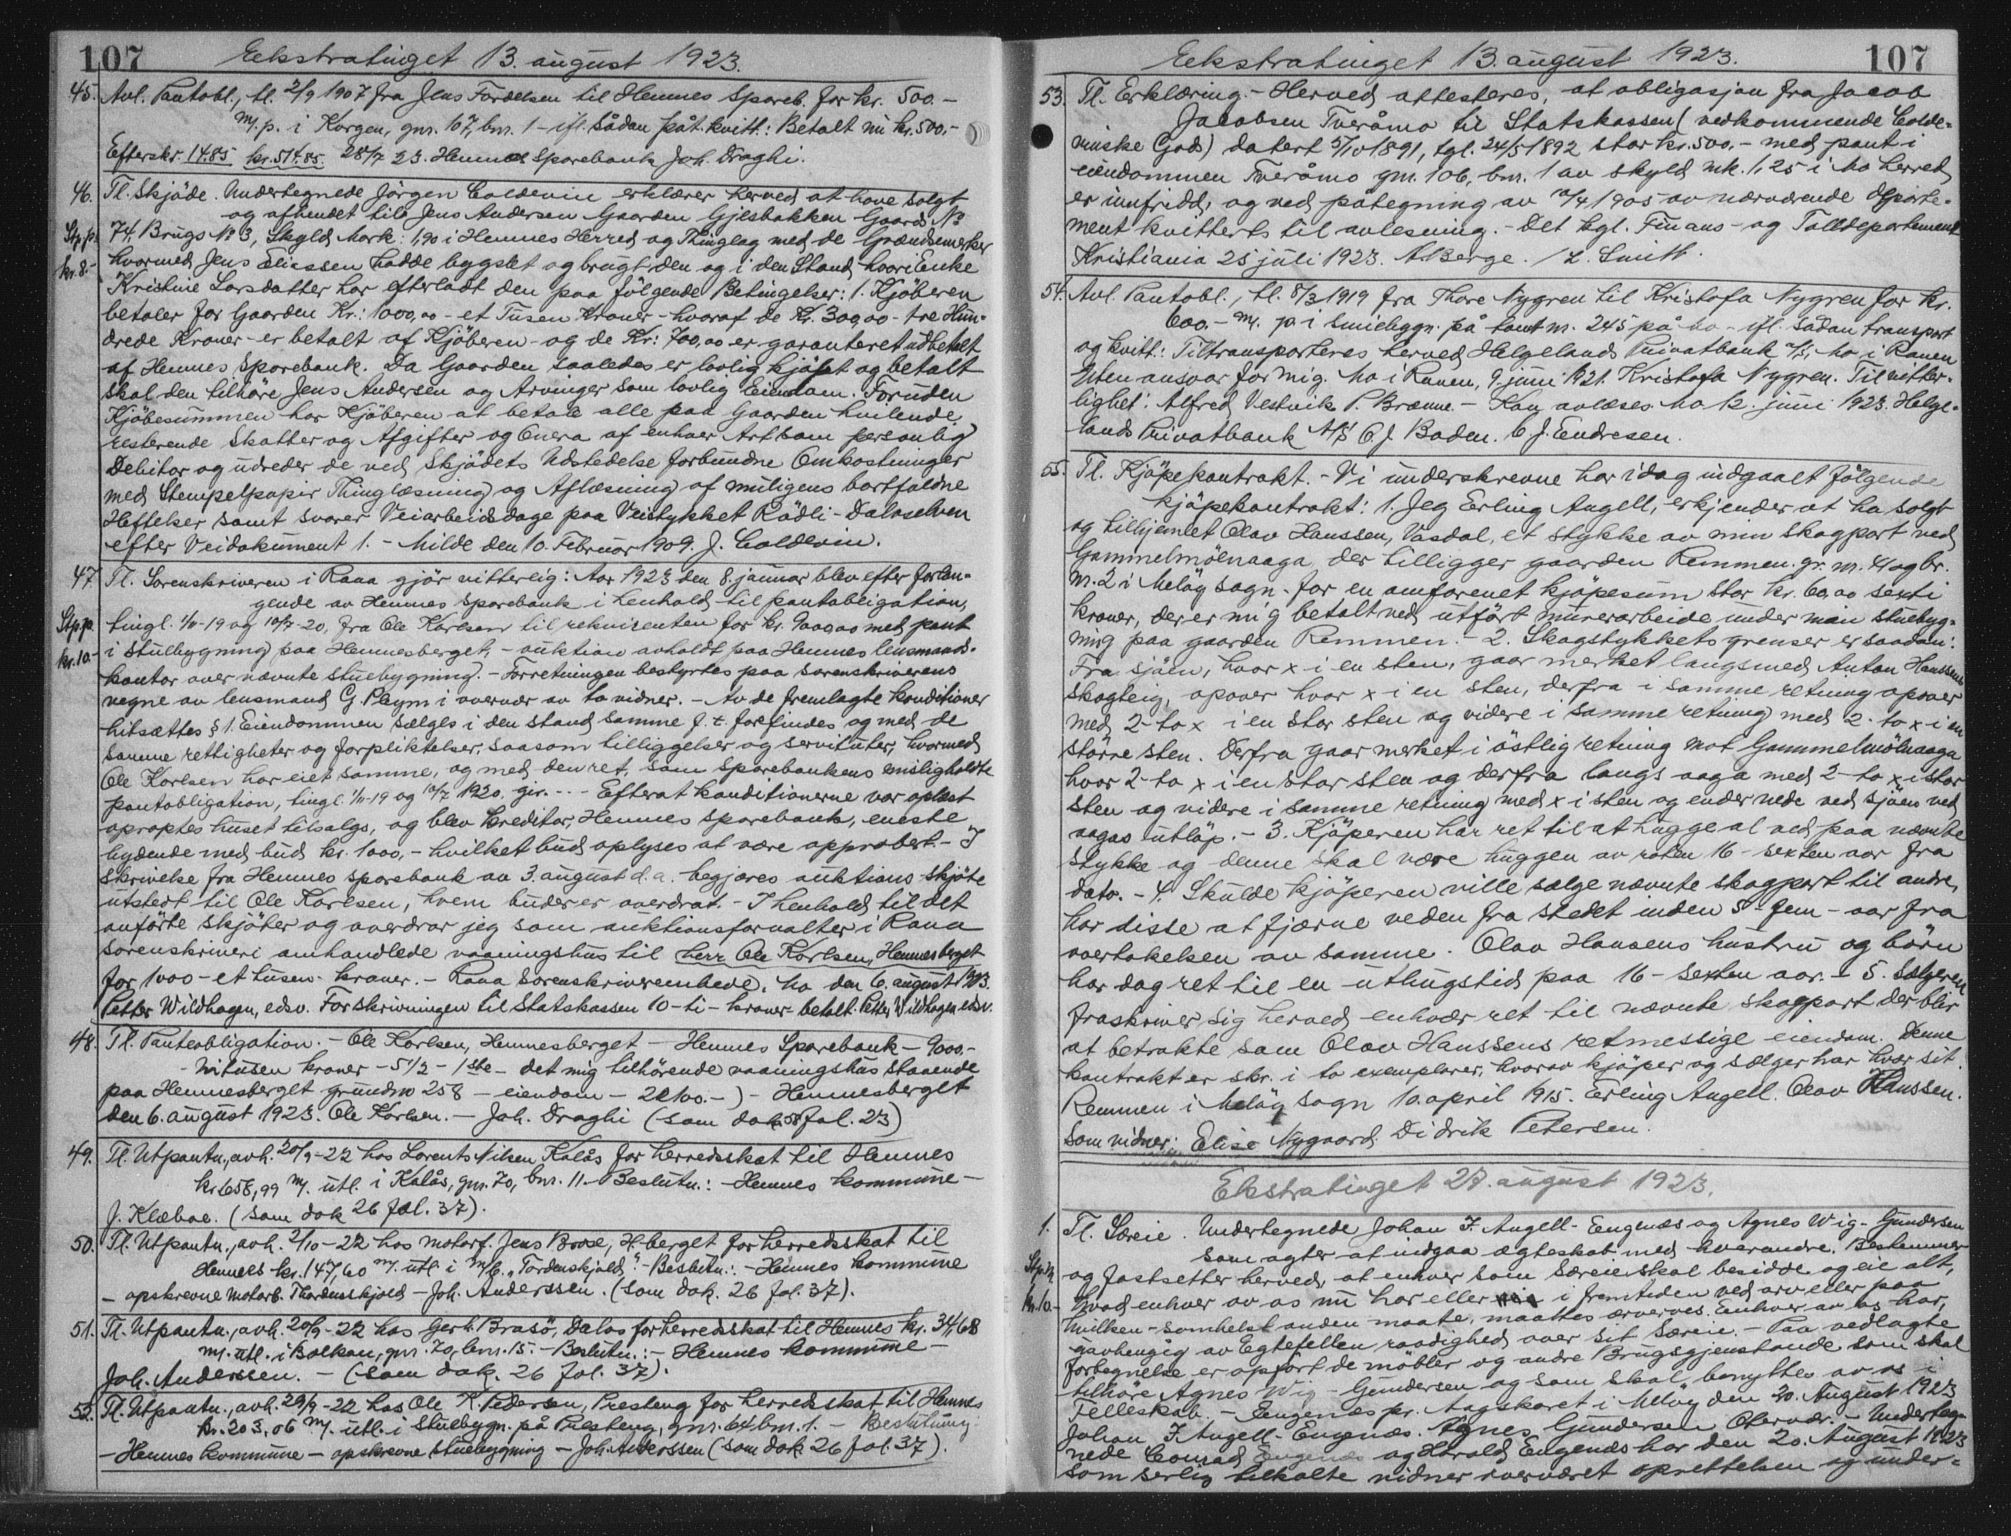 107
Ekstratinget 13. august 1923.
45. Avl. Pantobl., tl. 2/9 1907 fra Jens Fordelsen til Hemnes Spareb. for kr. 500.-
m. p. i Korgen, gnr. 107, bnr. 1 - ifl. sådan påt. kvitt.: Betalt nu kr. 500,-
Efterskr. 14.85 kr. 514.85. 28/7 23. Hemnes Sparebank Joh. Draghi.
46. Tl. Skjøde. Undertegnede Jörgen Coldevin erklærer herved at have solgt
og afhendet till Jens Andersen Gaarden Gjesbakken Gaards No
Stp.p. 74, Brugs No 3, Skyld Mark: 1,90 i Hemnes Herred og Thinglag med de Grændsemerker
kr. 8.- hvormed Jens Eliassen hadde bygslet og brugt den og i den Stand hvori Enke
Kristine Larsdatter har efterladt den paa følgende Betingelser: 1. Kjøberen
betaler for Gaarden Kr.: 1000,00 - et Tusen Kroner - hvoraf de Kr. 300,00 - tre Hun-
drede Kroner - er betalt af Kjøberen - og de Kr: 700,00 er garanteret udbetalt
af Hemnes Sparebank. Da Gaarden saaledes er lovlig kjøbt og betalt
skal den tilhøre Jens Andersen og Arvinger som lovlig Eiendom. Foruden
Kjøbesummen har Kjøberen at betale alle paa Gaarden hvilende
resterende Skatter og Afgifter og Onera af enhver Art som personlig
Debitor og udreder de ved Skjødets Udstedelse forbundne Omkostninger
med Stempelpapir Thinglæsning og Aflæsning af muligens bortfaldne
Heftelser samt svarer Veiarbeidsdage paa Veistykket Rödli - Daloselven
efter Veidokument 1. - Milde den 10. Februar 1909. J. Coldevin.
47. Tl. Sorenskriveren i Rana gjör vitterlig: Aar 1923 den 8. januar blev efter forlan-
gende av Hemnes Sparebank i henhold til pantobligation,
Stp.p. tingl. 1/11-19 og 10/7-20, fra Ole Karlsen til rekvirenten for kr. 9000,00 med pant
kr. 10.- i stuebygning paa Hemnesberget, - auktion avholdt paa Hemnes lensmands-
kontor over nævnte stuebygning. - Forretningen bestyrtes paa sorenskriverens
vegne av lensmand G Pleym i overvær av to vidner. - Av de fremlagte konditioner
hitsættes § 1. Eiendommen sælges i den stand samme f. t. forefindes og med de
samme rettigheter og forpliktelser, saasom tilliggelser og servituter, hvormed
Ole Karlsen har eiet samme, og med den ret, som sparebankens muligholdte
pantobligation, tingl. 1/11-19 og 10/7 1920, gir. - - - Efterat konditionerne var oplæst
opraptes huset tilsalgs, og blev kreditor, Hemnes sparebank, eneste
bydende med bud kr. 1000,- hvilket bud oplyses at være approbert. - I
skrivelse fra Hemnes sparebank av 3. august d. a. begjæres auktions-skjøte
utstedt til Ole Karlsen, hvem budet er overdrat. - I henhold til det
anførte skjøter og overdrar jeg som auktionsforvalter i Rana
sorenskriveri omhandlede vaaningshus til herr Ole Karlsen, Hemnesberget
for 1000 - et tusen - kroner. - Rana Sorenskriverembede, Mo den 6. august 1923.
Petter Wildhagen, edsv. Forskrivningen til Statskassen 10 - ti - kroner betalt. Petter Wildhagen edsv.
48. Tl. Panteobligation. - Ole Karlsen, Hemnesberget - Hemnes Sparebank - 9000.-
Nitusen kroner - 5 1/2 - 1ste - det mig tilhørende vaaningshus staaende
paa Hemnesberget grund nr 258 - eiendom - 20100.-) - Hemnesberget
den 6. august 1923. Ole Karlsen. - Joh. Draghi (som dok. 58 fol. 23)
49. Tl. Utpantn., avh. 20/9-22 hos Lorents Nilsen Kalås for herredsskat til Hemnes
kr. 658,99 m. utl. i Kalås, gnr. 70, bnr. 11 - Beslutn.: - Hemnes kommune -
J. Klæboe. (som dok 26 fol. 37).
50. Tl. Utpantn., avh. 2/10-22 hos motorf. Jens Brose, H.berget for herredsskat til
Hemnes kr. 147,60 m. utl. i m/b. "Tordenskjold". - Beslutn.: - Hemnes kommune
- opskrevne motorb. Thordenskjold - Joh. Anderssen. (som dok. 26 fol. 37).
51. Tl. Utpantn., avh. 20/9-22 hos Gerh. Brasö, Dalos for herredsskat til Hemnes kr. 34,68
m. utl. i Bolkan, gnr. 70, bnr. 15. - Beslutn.: - Hemnes kommune -
Joh. Anderssen. - (som dok. 26 fol. 37).
52. Tl. Utpantn., avh. 29/9-22 hos Ole K. Pedersen, Presteng for herredsskat til Hemnes
kr. 203,06 m. utl. i stuebygn. på Presteng, gnr. 64 bnr. 1. - Beslutning:
- Hemnes kommune - opskrevne stuebygning - Joh. Anderssen (som dok 26 fol. 37).
Ekstratinget 13. august 1923.
107
53. Tl. Erklæring. - Herved attesteres, at obligasjon fra Jacob
Jacobsen Tveråmo til Statskassen (vedkommende Colde-
vinske Gods) datert 5/10 1891, tgl. 24/5 1892 stor kr. 500.- med pant i
eiendommen Tveråmo gnr. 106, bnr. 1 av skyld mk. 1,25 i Mo herred
er innfridd, og ved påtegning av 11/4 1905 av nærværende departe-
ment kvittert til avlesning. - Det kgl. Finans- og Tolldepartement
Kristiania 25 juli 1923. A Berge. / L. Smitt.
54. Avl. Pantobl., tl. 8/3 1919 fra Thore Nygren til Kristofa Nygren for kr.
600.- m. p. i smiebygn. på tomt nr. 245 på Mo - ifl. sådan transport
og kvitt.: Tiltransporteres herved Helgelands Privatbank A/S, Mo i Ranen
Uten ansvar for mig. Mo i Ranen, 9 juni 1921. Kristofa Nygren. Til vitter-
lighet: Alfred Vestvik P. Brænne. - Kan avlæses. Mo 12. juni 1923. Helge-
lands Privatbank A/S O. J. Boden. C J. Endresen.
55. Tl. Kjøpekontrakt. - Vi underskrevne har idag indgaalt følgende
kjøpekontrakt: 1. Jeg Erling Angell, erkjender at ha solgt
og tilhjemlet Olav Hanssen, Vasdal, et stykke av min skogport ved
Gammelmölnaaga der tilligger gaarden Remmen gr. nr. 41 og br.
nr. 2 i Meløy sogn. for en omforenet kjøpesum stor kr. 60,00 sexti
kroner, der er mig betalt ved utført murerarbeide under min stuebyg-
ning paa gaarden Remmen. - 2. Skogstykkets grenser er saadan:
Fra sjöen, hvor x i en sten, gaar merket langsmed Anton Hanssens
skogteig, opover hvor x i en sten, derfra i samme retning opover
med 2-to x i en stor sten og videre i samme retning med 2-to x i en
større sten. Derfra gaar merket i östlig retning mot Gammelmölnaaga
hvor 2-to x i en stor sten og derfra langs aaga med 2-to x i stor
sten og videre i samme retning med x i sten og ender nede ved sjöen ved
aagas utløp. - 3. Kjøperen har ret til at hugge al ved paa nævnte
stykke og denne skal være huggen av roten 16 - sexten aar fra
dato. - 4. Skulde kjøperen ville sælge nævnte skogport til andre,
har disse at fjærne veden fra stedet inden 5 - fem - aar fra
overtakelsen av samme. Olav Hansens hustru og börn
har dog ret til en uthugstid paa 16 - sexten aar. - 5. Sælgeren
fraskriver sig herved enhvær ret til nævnte skogport der blir
at betrakte som Olav Hanssens retmessige eiendom. Denne
kontrakt er skr. i to exemplarer, hvorav kjøper og sælger har hvær sit.
Remmen i Meløy sogn 10. april 1915. Erling Angell. Olav Hanssen.
Som vidner: Elise Nygaard. Didrik Petersen.
Ekstratinget 27. august 1923.
1. Tl. Særeie. Undertegnede Johan F. Angell-Engenæs og Agnes Wig-Gundersen
som agter at indgaa ægteskab med hverandre, Bestemmer
Stp.p. og fastsetter herved, at enhver som Særeie skal besidde og eie alt,
kr. 10.- hvad enhver av os nu har eller i fremtiden ved arv eller paa
hvilken-somhelst anden maate, maattes ærverves. Enhver av os har,
uavhengig av Egtefellen raadighed over sit Særeie. - Paa vedlagte
fortegnelse er opført de möbler og andre Brugsgjenstande som skal
tilhøre Agnes Wig-Gundersen og som skal benyttes av os i
Felleskab. - Engenæs pr. Aagskaret i Meløy den 20. August 1923
Johan F. Angell-Engenæs. Agnes Gundersen Olerver. - Underteg-
nede Conrad Engenæs og Harald Engenæs har den 20. August 1923
som serlig tilkalte vidner overværet oprettelsen og under-